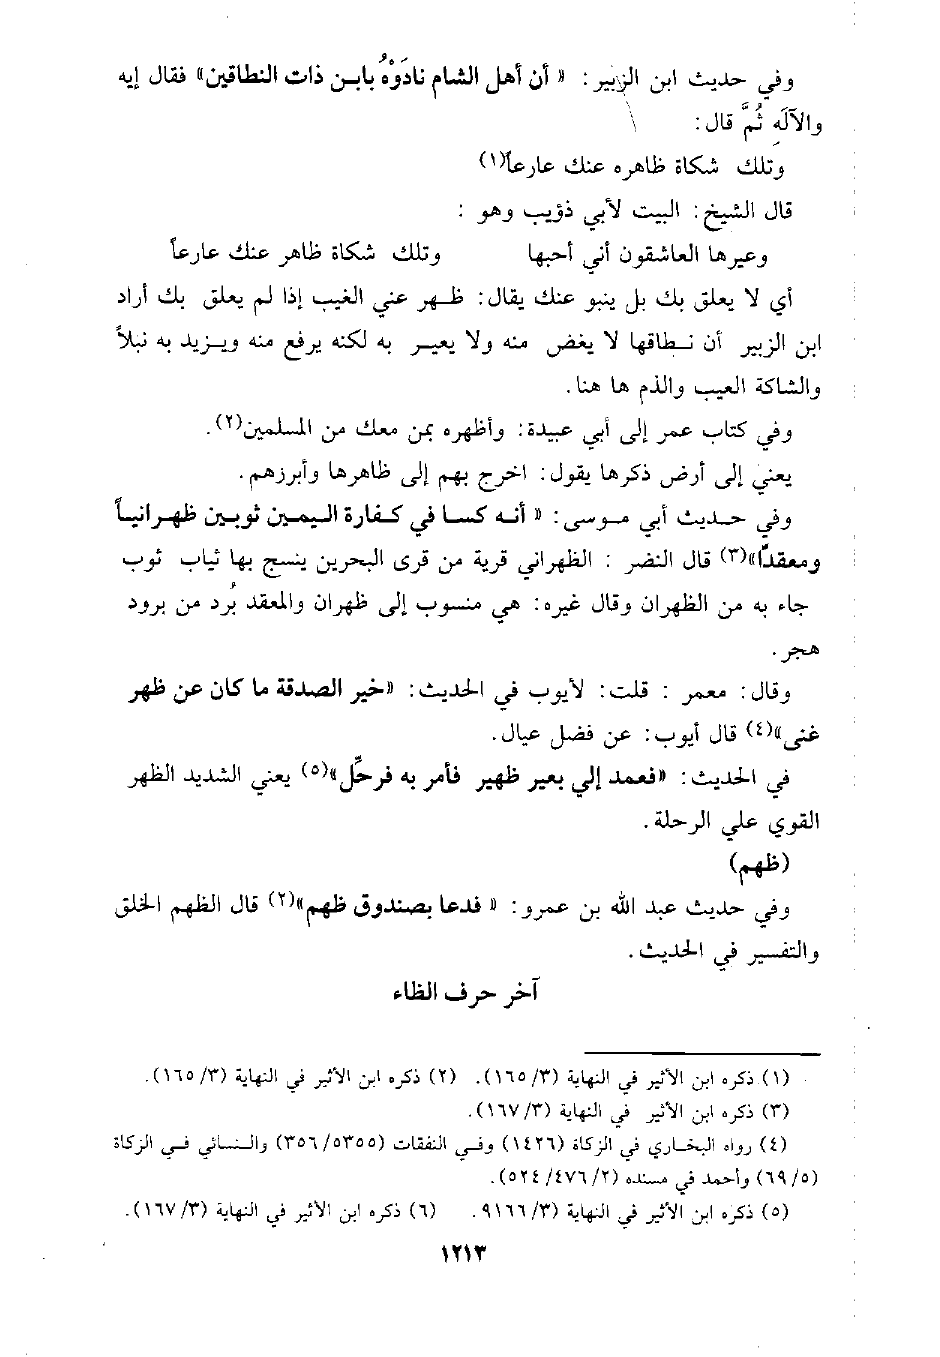 وفي حديث ابن الزبير : « أن أهل الشام نادَوْهُ بابن ذات النطاقين» فقال إيه
والآلَهِ ثُمَّ قال :
وتلك شكاة ظاهره عنك عارعاً(١)
قال الشيخ : البيت لأبي ذؤيب وهو :
وعيرها العاشقون أني أحبها وتلك شكاة ظاهر عنك عارعاً
أي لا يعلق بك بل ينبو عنك يقال : ظهر عني الغيب إذا لم يعلق بك أراد
ابن الزبير أن نطاقها لا يغض منه ولا يعير به لكنه يرفع منه ويزيد به نبلاً
والشاكة العيب والذم ها هنا .
وفي كتاب عمر إلى أبي عبيدة : وأظهره بمن معك من المسلمين(٢) .
يعني إلى أرض ذكرها يقول : اخرج بهم إلى ظاهرها وأبرزهم .
وفي حديث أبي موسى : « أنه كسا في كفارة اليمين ثوبين ظهرانياً
ومعقداً»(٣) قال النضر : الظهراني قرية من قرى البحرين ينسج بها ثياب ثوب
جاء به من الظهران وقال غيره : هي منسوب إلى ظهران والمعقد بُرد من برود
هجر .
وقال : معمر : قلت : لأيوب في الحديث : «خير الصدقة ما كان عن ظهر
غنى»(٤) قال أيوب : عن فضل عيال .
في الحديث : «فعمد إلي بعير ظهير فأمر به فرحِّل»(٥) يعني الشديد الظهر
القوي علي الرحلة .
(ظهم)
وفي حديث عبد الله بن عمرو : « فدعا بصندوق ظهم»(٢) قال الظهم الخلق
والتفسير في الحديث .
آخر حرف الظاء
(١) ذكره ابن الأثير في النهاية (٣/ ١٦٥). (٢) ذكره ابن الأثير في النهاية (٣/ ١٦٥).
(٣) ذكره ابن الأثير في النهاية (٣/ ١٦٧).
(٤) رواه البخاري في الزكاة (١٤٢٦) وفي النفقات (٥٣٥٥/ ٣٥٦) والنسائي في الزكاة
(٥/ ٦٩) وأحمد في مسنده (٢/ ٤٧٦/ ٥٢٤).
(٥) ذكره ابن الأثير في النهاية (٣/ ٩١٦٦. (٦) ذكره ابن الأثير في النهاية (٣/ ١٦٧).
١٢١٣